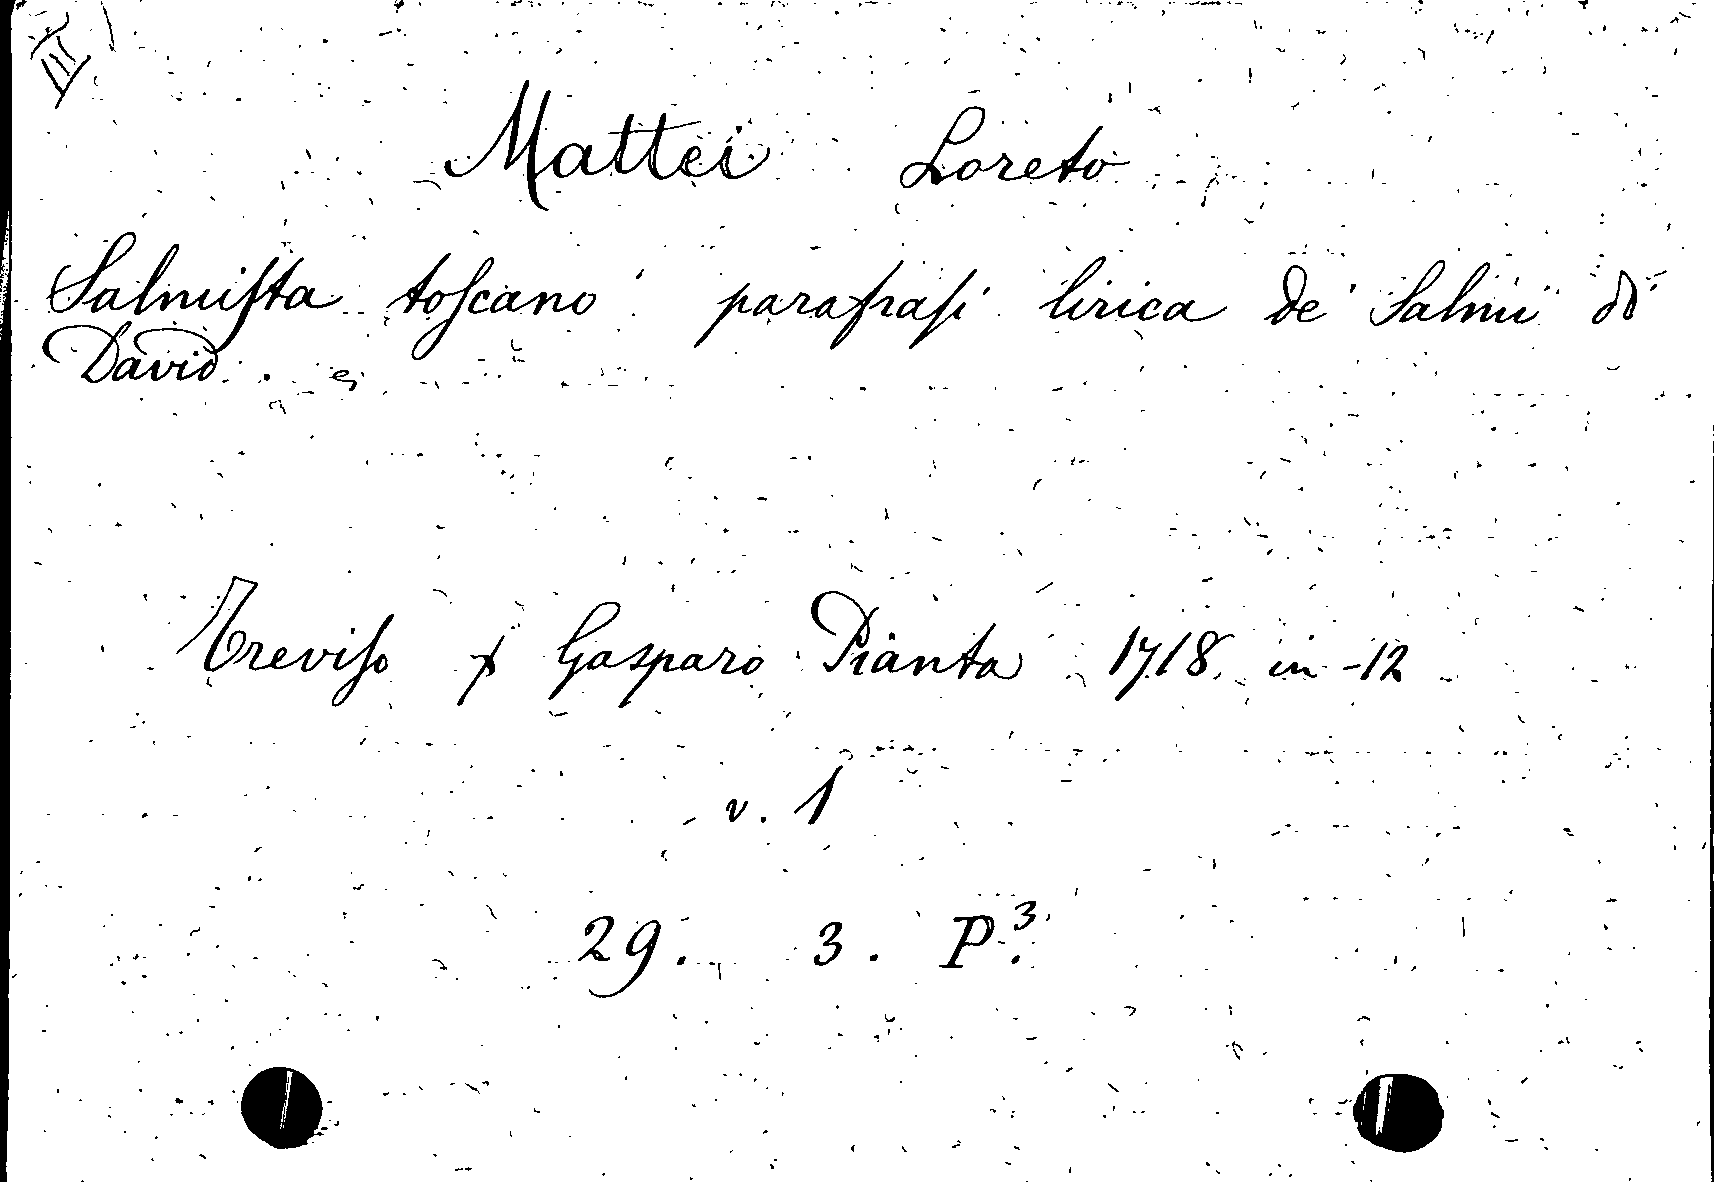 III
Mattei Loreto
Salmiſta toſcano parafraſi lirica de' Salmi di
David
Treviſo p Gasparo Pianta 1718 in -12
v. 1
29. 3. P.³